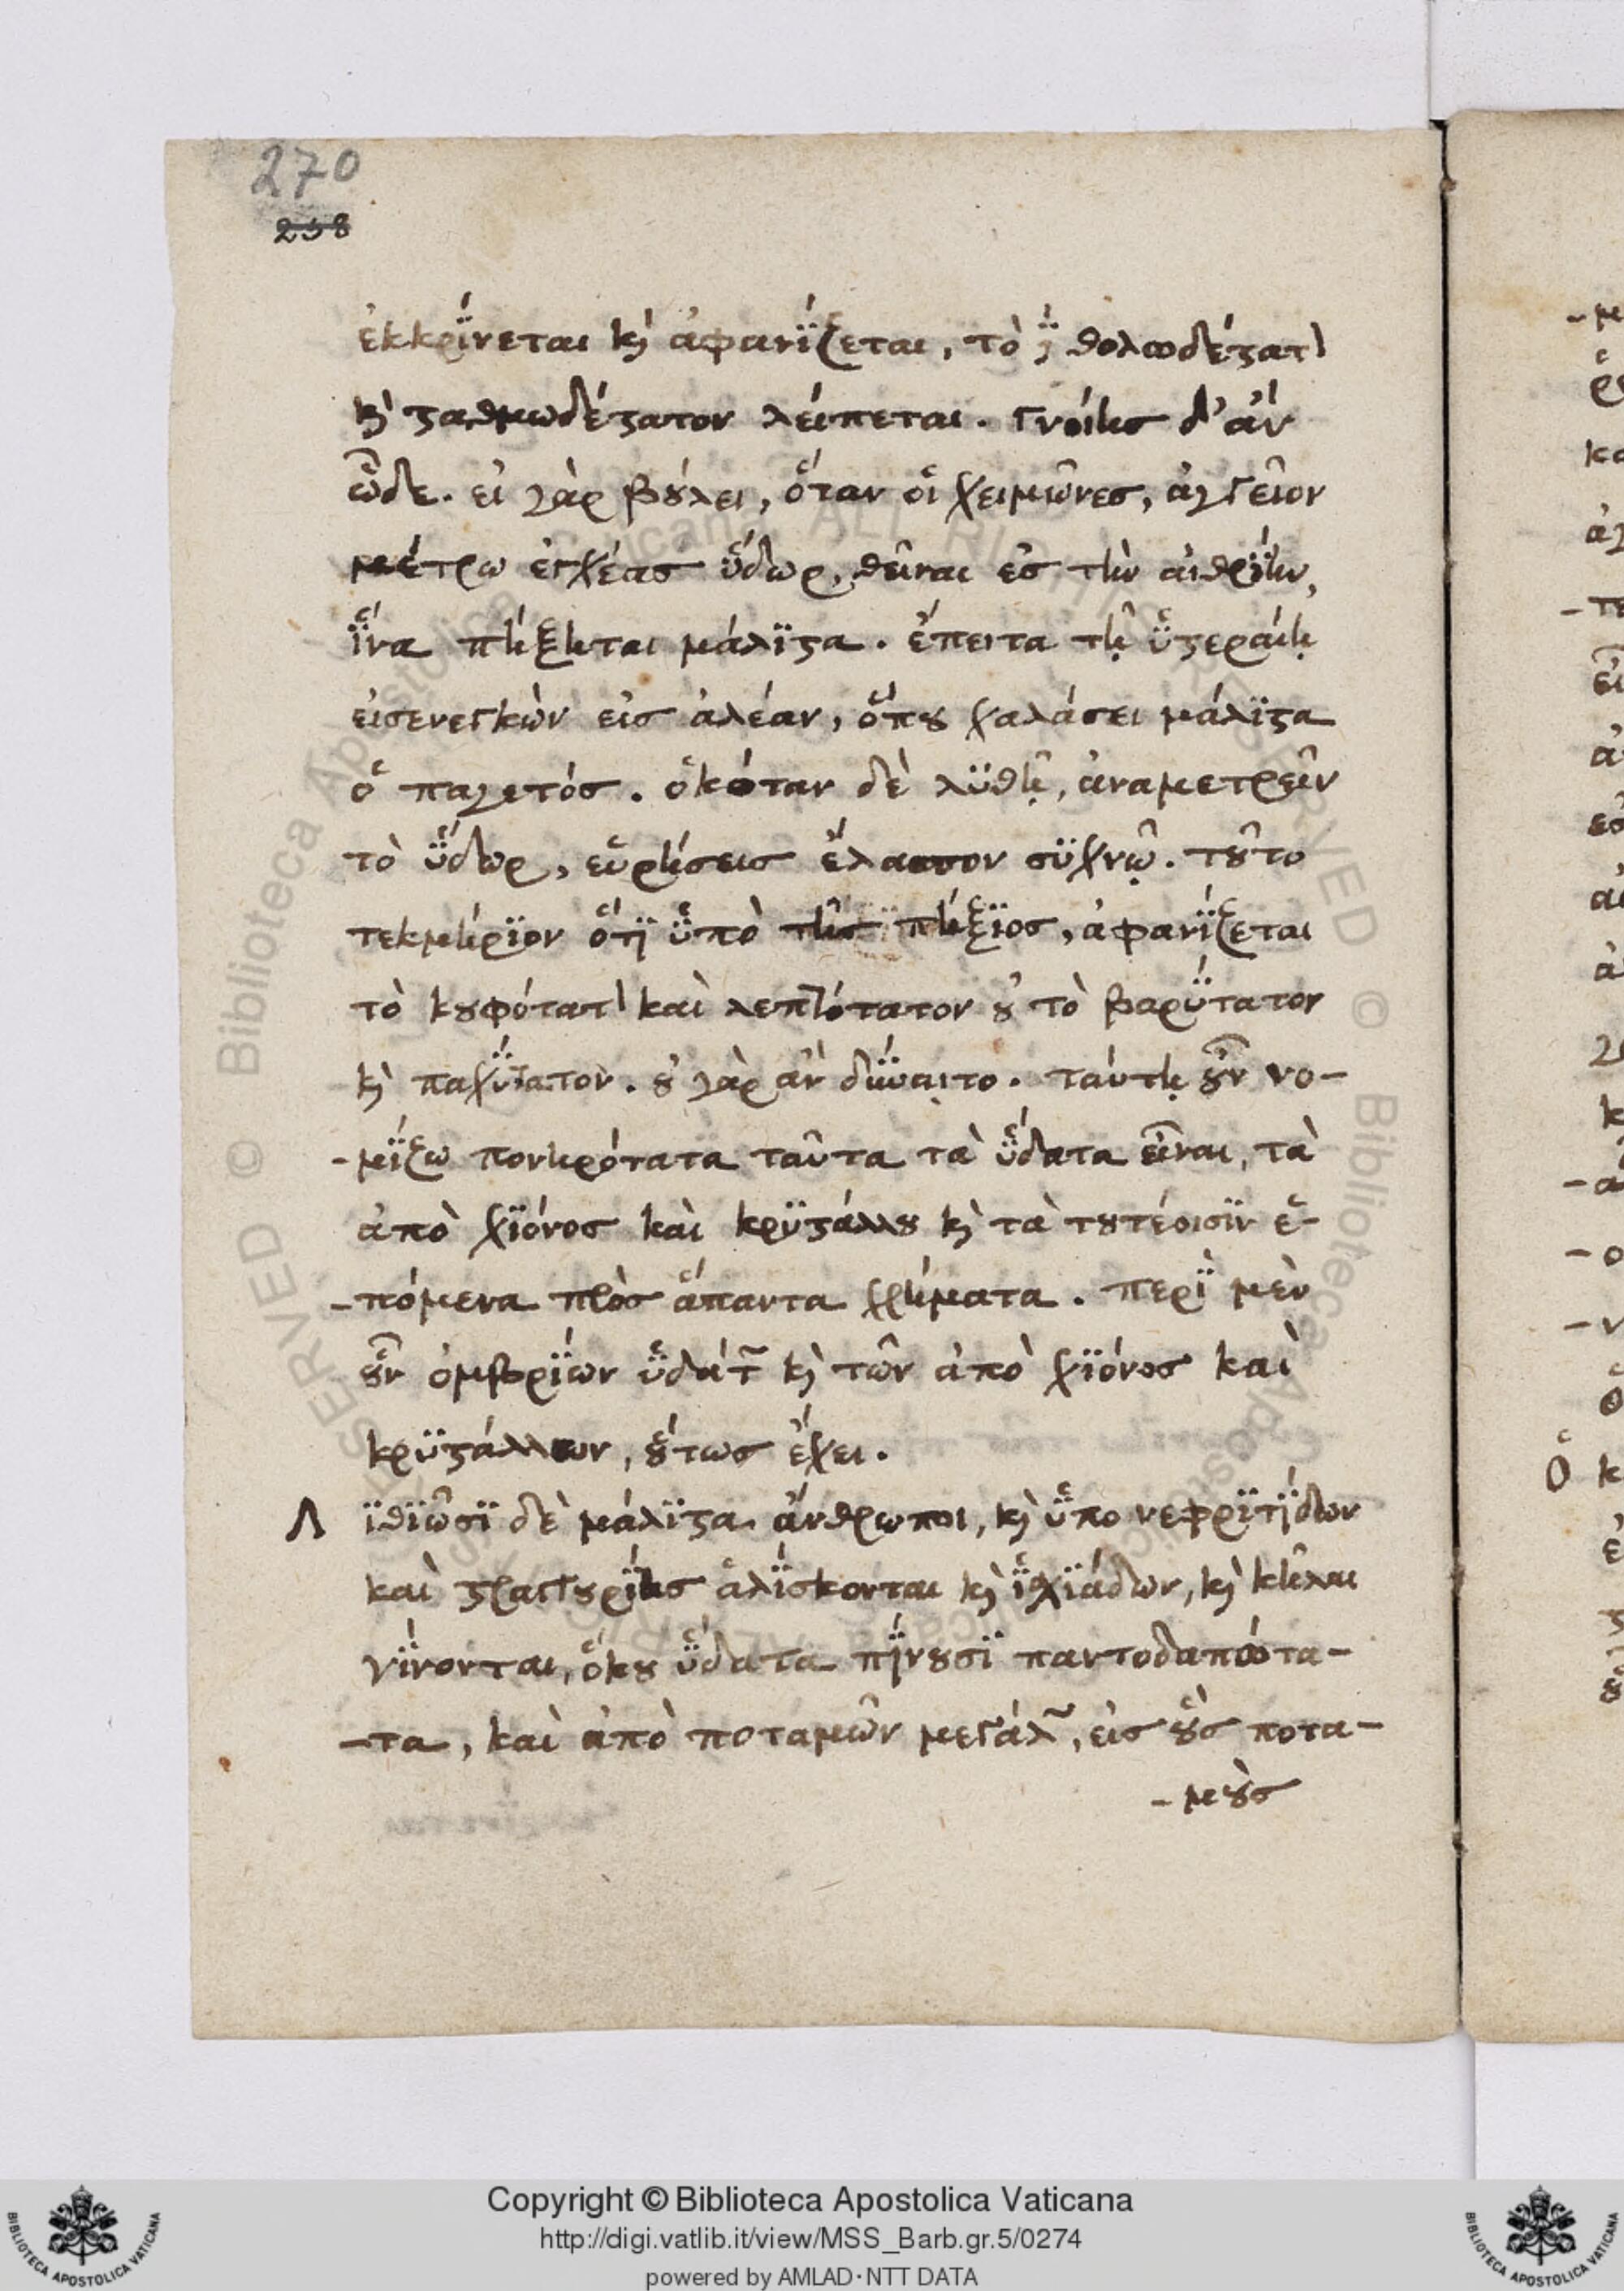 270
238
ἐκκρίνεται κὶ ἀφανίζεται, τὸ θολωδέστατ
κὶ σταθμωδέστατον λείπεται. Γνοίης δ' ἂν
ὧδε. εἰ γὰρ βούλει, ὅταν οἱ χειμῶνες, ἀγγεῖον
μέτρω ἐγχέας ὕδωρ, θεῖναι ἐς τὴν αἰθρίην,
ἵνα πήξηται μάλιστα. ἔπειτα τῇ ὑστεραίῃ
εἰσενεγκὼν εἰς ἀλέαν, ὅπου χαλάσει μάλιστα
ὁ παγετός. ὁκόταν δὲ λυθῇ, ἀναμετρεῖν
τὸ ὕδωρ, εὑρήσεις ἔλασσον συχνῷ. τοῦτο
τεκμήριον ὅτι ὑπὸ τῆς πήξιος, ἀφανίζεται
τὸ κουφότατ καὶ λεπτότατον οὐ τὸ βαρύτατον
κὶ παχύτατον. οὐ γὰρ ἂν δύναιτο. ταύτῃ οὖν νο-
-μίζω πονηρότατα ταῦτα τὰ ὕδατα εἶναι, τὰ
ἀπὸ χιόνος καὶ κρυστάλλου κὶ τὰ τουτέοισιν ἑ-
-πόμενα πρὸς ἅπαντα χρήματα. περὶ μὲν
οὖν ὀμβρίων ὑδάτ κὶ τῶν ἀπὸ χιόνος καὶ
κρυστάλλων, οὕτως ἔχει.
Λιθιῶσι δὲ μάλιστα ἄνθρωποι, κὶ ὑπο νεφριτίδων
καὶ στραγγουρίης ἁλίσκονται κὶ ἰσχιάδων, κὶ κῆλαι
γίνονται, ὅκου ὕδατα πίνουσι παντοδαπώτα-
-τα, καὶ ἀπὸ ποταμῶν μεγάλ, εἰς οὓς ποτα-
-μοὺς
Copyright © Biblioteca Apostolica Vaticana
http://digi.vatlib.it/view/MSS_Barb.gr.5/0274
powered by AMLAD·NTT DATA